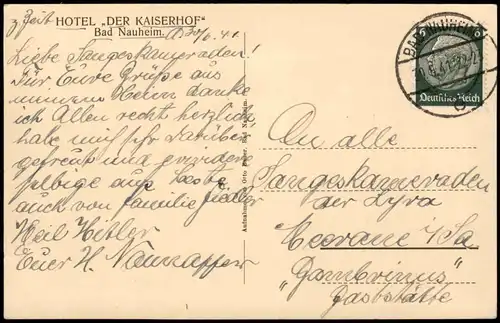 z Zeit
HOTEL "DER KAISERHOF"
Bad Nauheim. 30/6. 41
Liebe Sangeskameraden!
Für Eure Grüße aus
meinem Heim danke
ich Allen recht herzlich
habe mich sehr darüber
gefreut und erwidere
selbige aufs beste
auch von Familie Fiedler
Heil Hitler
Euer H.
Aufnahme: Otto Bad Nauheim.
BAD NAUHEIM
6 6
Deutsches Reich
An alle
Sangeskameraden
der Lyra
Meerane i/Sa
„Gambrinus"
Gaststätte